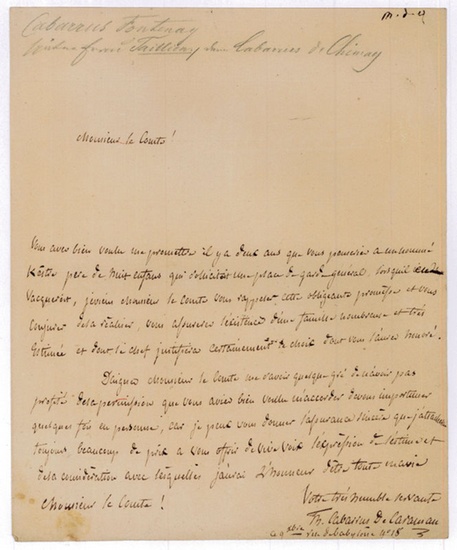 m-d-q
Cabarrus Fontenay
Tallien, dem Cabarrus de Chimay
Monsieur le Comte!
Vous avés bien voulu me promettre il y a deux ans que vous penseriés a un nommé
pere de huit enfans, qui sollicitait une place de garde general, lorsquil
vacqueroit, je viens monsieur le Comte vous rappeler cette obligeante promesse et vous
de la réaliser, vous assurerés lexistence dune famille nombreuse et très
Estimée et dont le chef justifiera certainement le choix dont vous laurés honoré.
Daignés monsieur le Comte me savoir quelque gré de navoir pas
profité de la permission que vous aviés bien voulu maccorder de vous importuner
quelques fois en personne, car je peux vous donner lassurance sincère que jattacherai
toujours beaucoup de prix a vous offrir de vive voix lexpression de lestime et
de la considération avec lesquelles jaurai l'honneur dêtre toute ma vie
Monsieur le Comte!
Votre très humble servante
Th. Cabarrus De Caraman
ce 9 xbre rue de Babylone n° 18